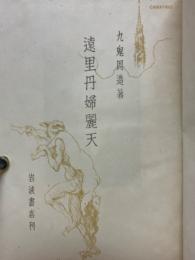 九鬼周造著
遠里丹婦麗天
岩波書店刊